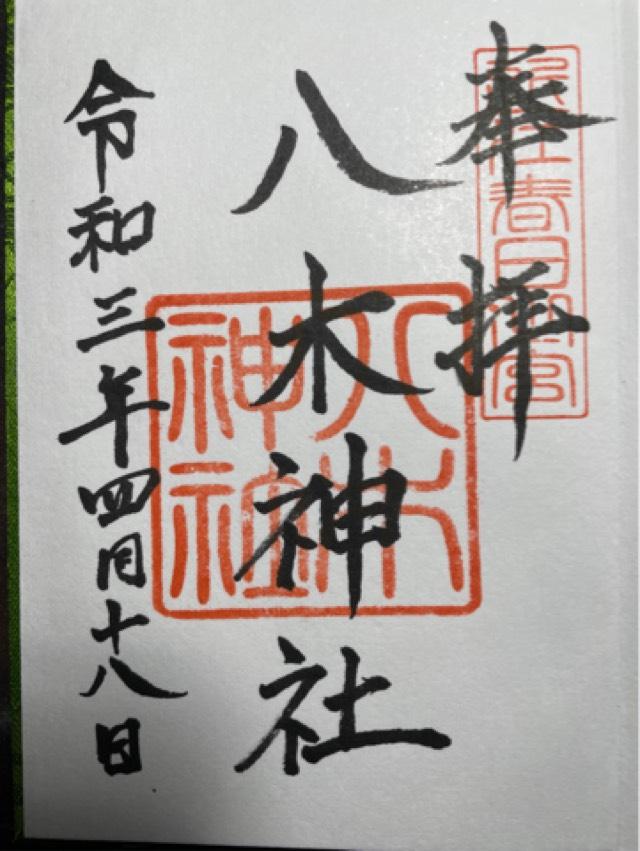 奉拝
八木神社
令和三年四月十八日
八木
神社